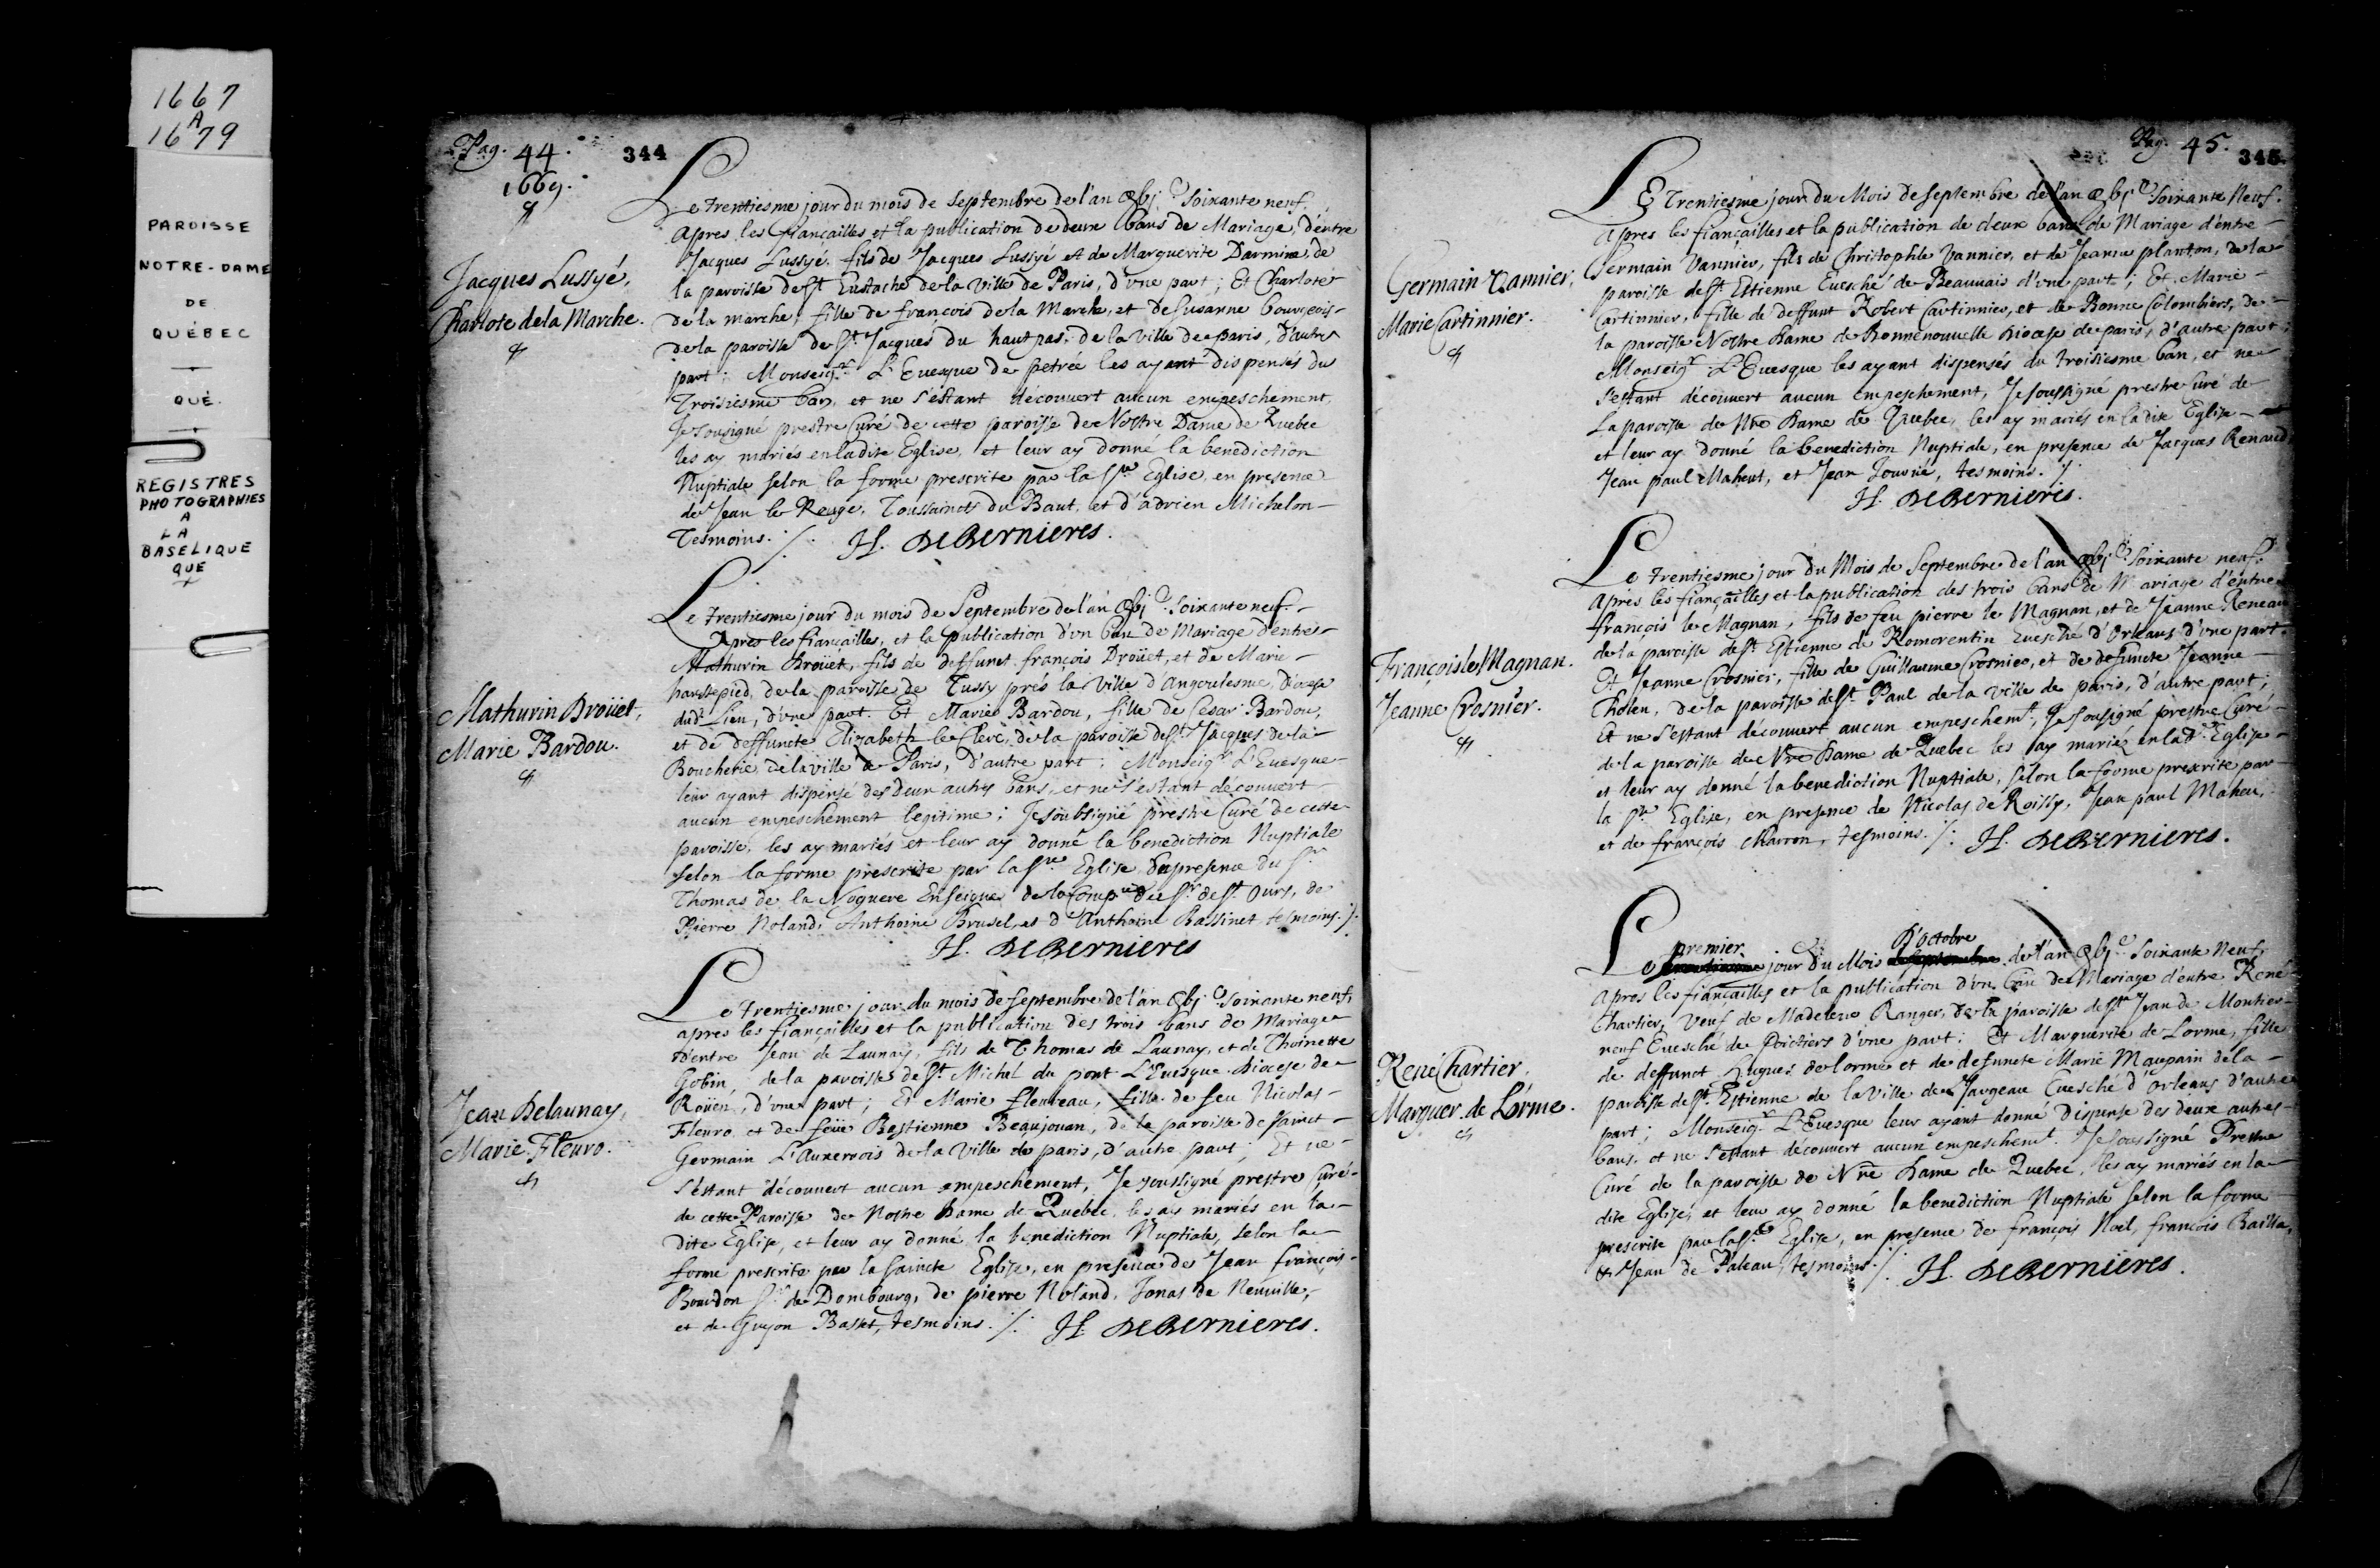 1667
A
1679
PAROISSE
NOTRE-DAME
DE
QUÉBEC
QUÉ.
REGISTRES
PHOTOGRAPHIES
A
LA
BASELIQUE
QUE
Pag. 44. 344
1669.
Jacques Lussyé,
Charlote de la Marche.
Le trentiesme jour du mois de septembre de l'an soixante neuf.
Apres les fiançailles et la publication de deux bans de Mariage, d'entre
Jacques Lussyé, fils de Jacques Lussyé et de Marguerite Darmine, de
la paroisse de st Eustache de la ville de Paris, d'vne part; Et Charlote
de la marche, fille de françois de la Marche, et de Susanne bourgeois
de la paroisse de st Jacques du haut pas, de la ville de paris, d'autre
part; Monseigr L'Euesque de petrée les ayant dispensés du
Troisiesme ban, et ne s'estant découvert aucun empeschement,
Je sousigné prestre Curé de cette paroisse de Nostre Dame de Quebec
les ay mariés en ladite Eglise, et leur ay donné la benediction
Nuptiale selon la forme prescrite par la ste Eglise, en presence
de Jean le Rouge, Toussainct du Baut, et d'adrien Michelon
Tesmoins. /. H. DEBERNIERES.
Mathurin Droüet,
Marie Bardou.
Le trentiesme jour du mois de Septembre de l'an soixante neuf.
Apres les fiançailles, et la publication d'vn ban de Mariage d'entre
Mathurin Droüet, fils de deffunct françois Droüet, et de Marie
haustepied, de la paroisse de Tussy prés la ville d'Angoulesme, diocese
dudt Lieu, d'vne part. Et Marie Bardou, fille de Cesar Bardou,
et de deffuncte Elizabeth le Clerc, de la paroisse de st Jacques de la
Boucherie de la ville de Paris, d'autre part; Monseigr L'Euesque
leur ayant dispensé des deux autres bans, et ne s'estant découvert
aucun empeschement legitime; Je soubsigné prestre Curé de cette
paroisse, les ay mariés et leur ay donné la benediction Nuptiale
selon la forme prescrite par la ste Eglise en presence du sr
Thomas de la Noguere Enseigne de la Compie du sr de st Ours, de
Pierre Noland, Anthoine Brusel, et d'Anthoine Bassinet tesmoins. /.
H. DEBERNIERES
Jean Delaunay,
Marie Fleuro.
Le trentiesme jour du mois de septembre de l'an soixante neuf,
apres les fiançailles et la publication des trois bans de Mariage
d'entre Jean de Launay, fils de Thomas de Launay, et de Thoinette
Gobin, de la paroisse de st Michel du pont L'Euesque Diocese de
Roüen, d'vne part; Et Marie fleureau, fille de feu Nicolas
Fleuro et de feüe Bastienne Beaujouan, de la paroisse de sainct
Germain L'Auxerrois de la ville de paris, d'autre part; Et ne
s'estant découvert aucun empeschement, Je soussigné prestre Curé
de cette Paroisse de Nostre Dame de Quebec, les ay mariés en la
dite Eglise, et leur ay donné la benediction Nuptiale, selon la
forme prescrite par la saincte Eglise, en presence de Jean françois
Bourdon sr de Dombourg, de pierre Noland, Jonas de Neuuille,
et de Guyon Basset, tesmoins. /. H. DEBERNIERES.
Pag. 45. 345.
Germain Vannier,
Marie Cartinnier.
LE Trentiesme jour du Mois de septembre de l'an soixante Neuf.
Apres les fiançailles et la publication de deux bans de Mariage d'entre
Germain Vannier, fils de Christophle Vannier, et de Jeanne planton, de la
paroisse de st Estienne Euesché de Beauuais d'vne part; Et Marie
Cartinnier, fille de deffunt Robert Cartinnier, et de Bonne Colombiers, de
la paroisse Nostre Dame de Bonnenouuelle diocese de paris, d'autre part;
Monseigr L'Euesque les ayant dispensés du troisiesme ban, et ne
s'estant découvert aucun empeschement, Je soussigné prestre Curé de
La paroisse de Nre Dame de Quebec, les ay mariés en la dite Eglise
et leur ay donné la benediction Nuptiale, en presence de Jacques Renaud,
Jean paul Maheut, et Jean Jouuié, tesmoins. /.
H. DEBERNIERES.
François le Magnan.
Jeanne Crosnier.
Le trentiesme jour du Mois de Septembre de l'an soixante neuf.
Apres les fiançailles et la publication des trois bans de Mariage d'entre
françois le Magnan, fils de feu pierre le Magnan, et de Jeanne Reneau
de la paroisse de st Estienne de Romorentin Euesché d'Orleans d'vne part.
Et Jeanne Crosnier, fille de Guillaume Crosnier, et de defuncte Jeanne
Tholeu, de la paroisse de st Paul de la ville de paris, d'autre part;
Et ne s'estant découvert aucun empeschemt, Je sousigné prestre Curé
de la paroisse de Nre Dame de Quebec les ay mariés en lad. Eglise
et leur ay donné la benediction Nuptiale, selon la forme prescrite par
la ste Eglise, en presence de Nicolas de Roissy, Jean paul Maheu,
et de françois Charron, tesmoins. /. H. DEBERNIERES.
René Chartier,
Marguer. de Lorme.
premier D'octobre
Le jour du Mois de l'an soixante Neuf,
Apres les fiançailles et la publication d'vn ban de Mariage d'entre René
Chartier, veuf de Madeleine Ranger, de la paroisse de st Jean de Montier
neuf Euesché de Poictiers d'vne part; Et Marguerite de Lorme, fille
de deffunct Hugues de lorme et de defuncte Marie Maupain de la
paroisse de st Estienne de la ville de Jargeau Euesché d'orleans d'autre
part; Monseigr L'Euesque leur ayant donné dispense des deux autres
bans, et ne s'estant découvert aucun empeschemt. Je soussigné Prestre
Curé de la paroisse de Nre Dame de Quebec, les ay mariés en la
dite Eglise, et leur ay donné la benediction Nuptiale selon la forme
prescrite par la ste Eglise, en presence de françois Noel, francois Bailla,
& Jean de Paleau, tesmoins. /. H. DEBERNIERES.